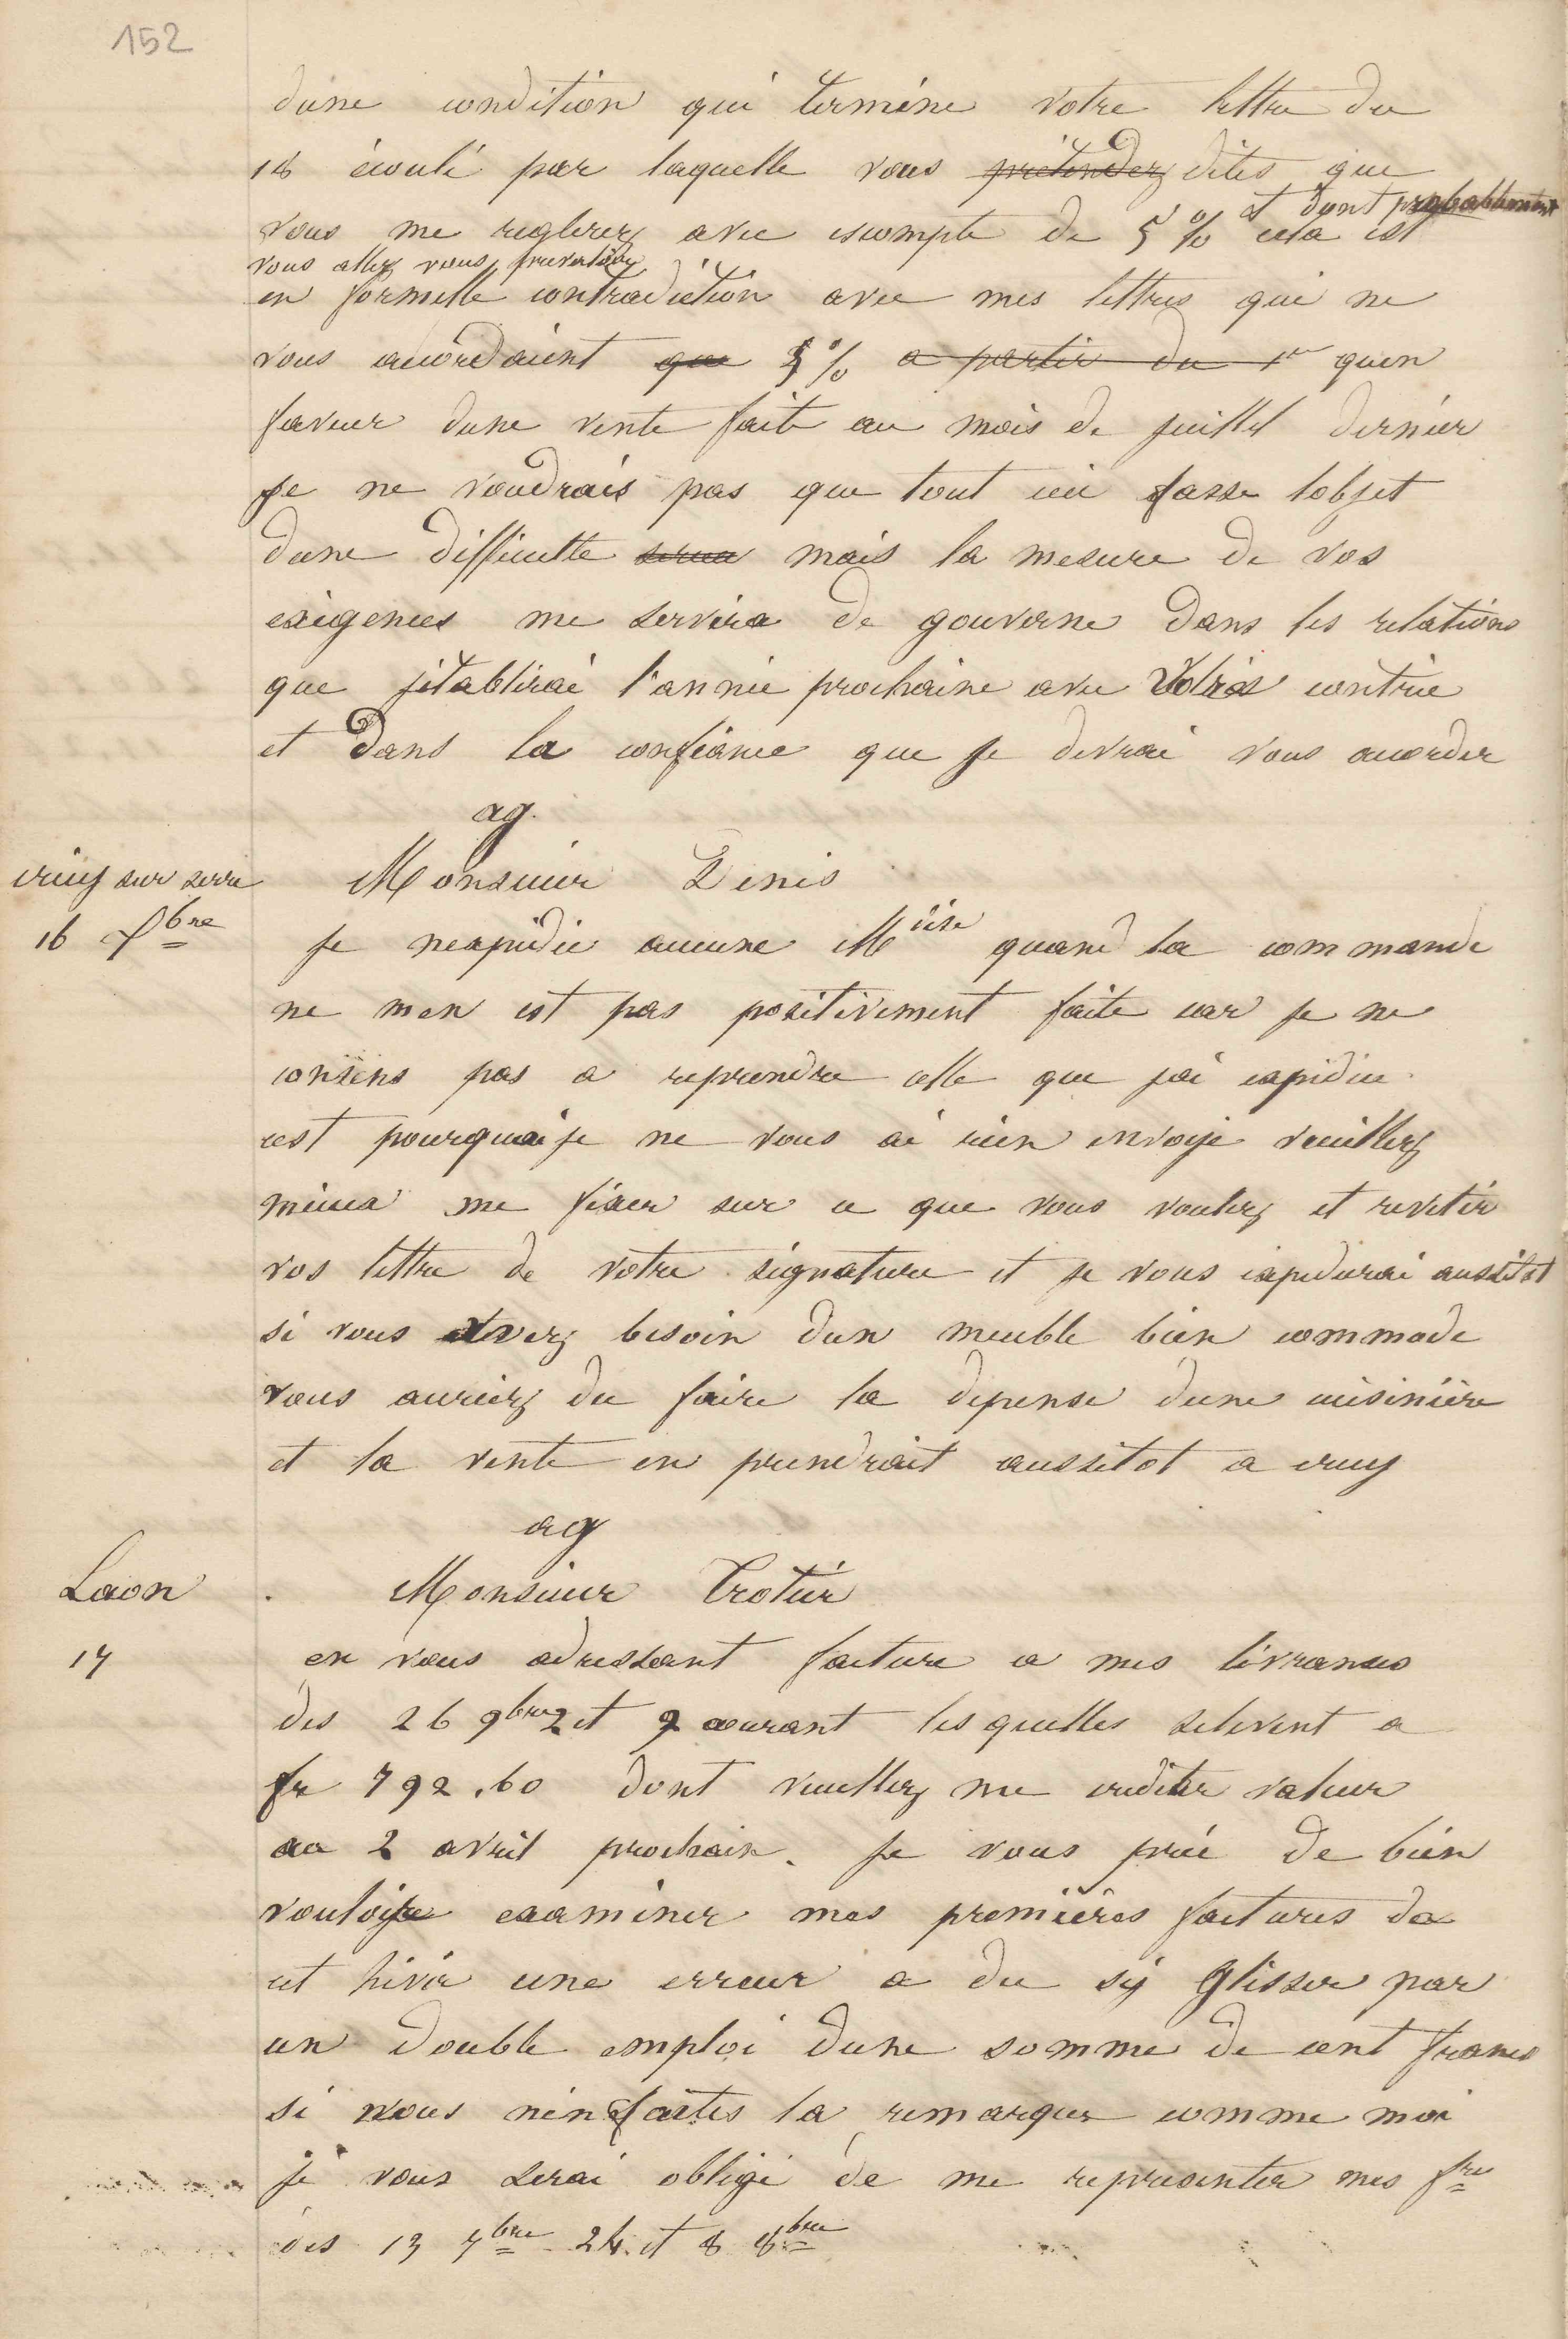 152
dune condition qui termine votre lettre du
18 écoulé par laquelle vous prétendez dites que
et dont probablement
vous me reglerez avec escompte de 5 % cela est
vous allez vous prevaloir
en formelle contradiction avec mes lettres qui ne
vous accordaient que 5 % a partir du 1er quen
faveur dune vente faite au mois de juillet dernier
Je ne voudrais pas que tout ceci fasse lobjet
dune difficulte mais la mesure de vos
exigences me servira de gouverne dans les relations
que jétablirai l'année prochaine avec contrée
et dans la confiance que je devrai vous accorder
ag.
crecy sur serre
Monsieur Denis
16 Xbre
Je nexpidie aucune Mdise quand la commande
ne men est pas positivement faite car je ne
consens pas a reprendre celle que jai expidiee
cest pourquoi je ne vous ai rien envoyé veuillez
mieux me fixer sur ce que vous voulez et revetir
vos lettre de votre signature et je vous expedierai aussitot
si vous avez besoin dun meuble bien commode
vous auriez du faire la depense dune cuisinière
et la vente en prendrait aussitot a crecy
ag
Laon
Monsieur Trotier
17
en vous adressant facture a mes livrances
des 26 9bre 2 et 9 courant les quelles selevent a
fr 792.60 dont veuillez me crediter valeur
au 2 avril prochain. Je vous prie de bien
vouloir examiner mes premières factures de
cet hiver une erreur a du sy Glisser par
un double emploi dune somme de cent francs
si vous nen faites la remarque comme moi
je vous serai obligé de me representer mes fres
des 13 7bre 24 et 8 8bre